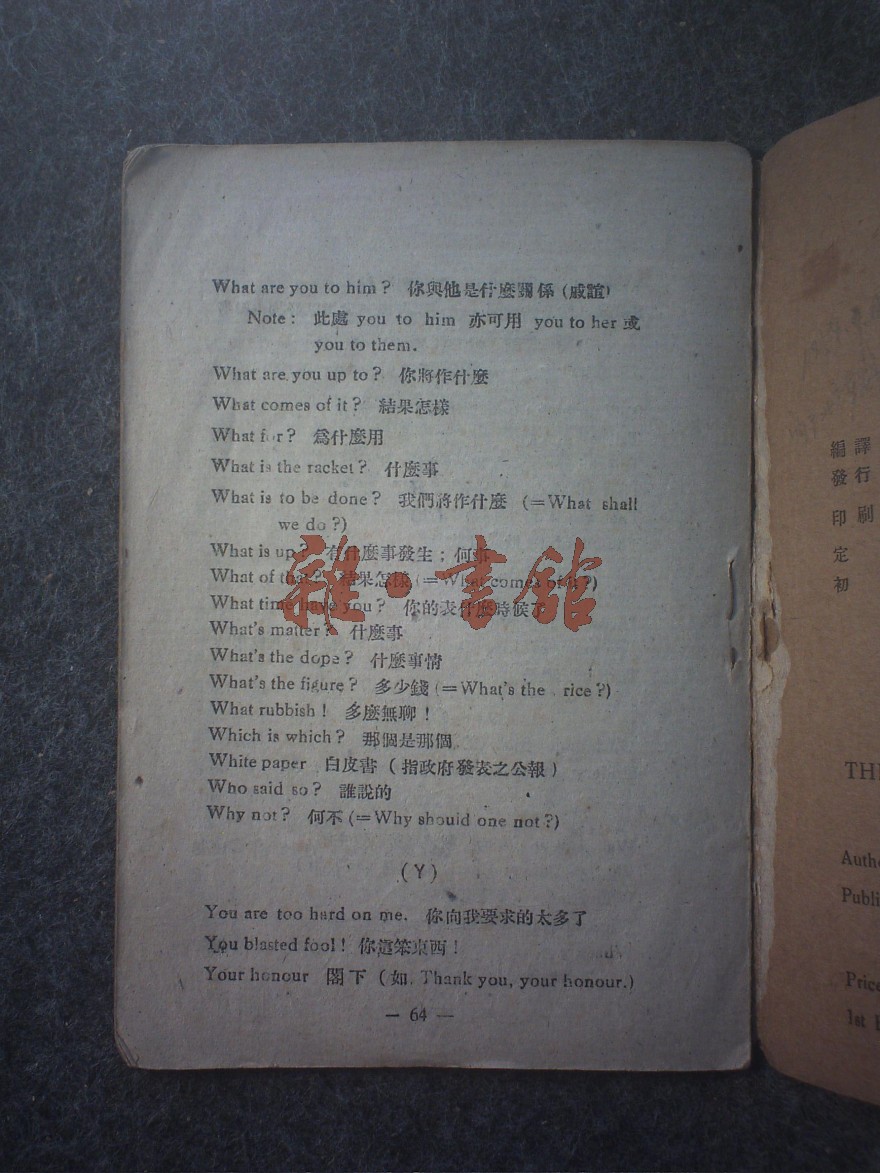 What are you to him? 你與他是什麼關係 (戚誼)
Note: 此處 you to him 亦可用 you to her 或
you to them.
What are you up to? 你將作什麼
What comes of it? 結果怎樣
What for? 爲什麼用
What is the racket? 什麼事
What is to be done? 我們將作什麼 (=What shall
we do?)
What is up? 有什麼事發生; 何事
What of that? 結果怎樣 (=What comes of it?)
What time have you? 你的表什麼時候了
What's matter? 什麼事
What's the dope? 什麼事情
What's the figure? 多少錢 (=What's the rice?)
What rubbish! 多麼無聊!
Which is which? 那個是那個
White paper 白皮書 (指政府發表之公報)
Who said so? 誰說的
Why not? 何不 (=Why should one not?)
(Y)
You are too hard on me. 你向我要求的太多了
You blasted fool! 你這笨東西!
Your honour 閣下 (如 Thank you, your honour.)
— 64 —
雜·書館
編譯
發行
印刷
定
初
TH
Auth
Publi
Price
1st